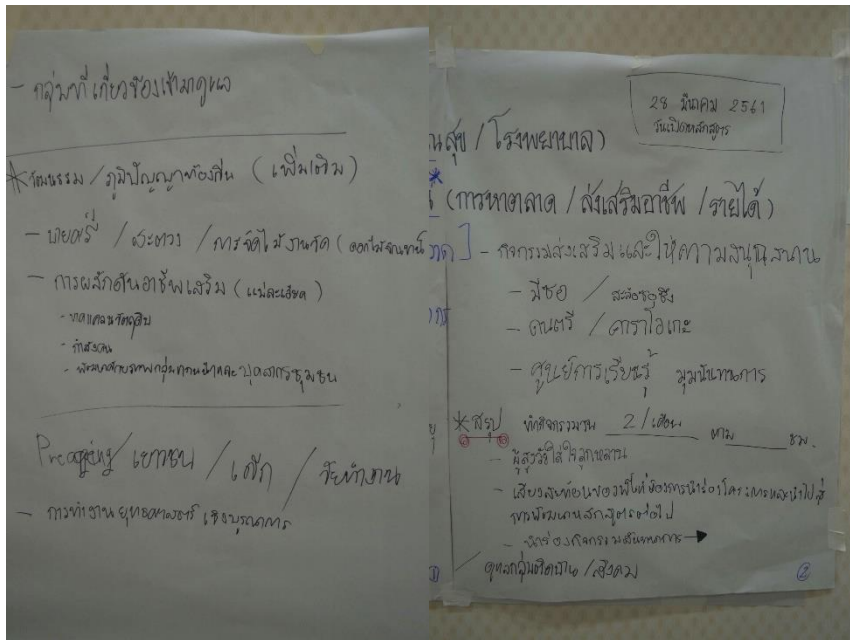 - กลุ่มที่เกี่ยวข้องเข้ามาดูแล
* วัฒนธรรม / ภูมิปัญญาท้องถิ่น (เพิ่มเติม)
- บายศรี / / การจัดไม้งานวัด
- การผลักดันอาชีพเสริม
- ขาดแคลนวัตถุดิบ
- กำลังคน
- บุคลากรชุมชน
Preaging / เยาวชน / เด็ก / วัยทำงาน
- การทำงานยุทธศาสตร์เชิงบูรณาการ
28 มีนาคม 2561
วันเปิดหลักสูตร
ณสุข / โรงพยาบาล)
(การหาตลาด / ส่งเสริมอาชีพ / รายได้)
- กิจกรรมส่งเสริมและให้ความสนุกสนาน
- มีซอ / สะล้อซอซึง
- ดนตรี / คาราโอเกะ
- ศูนย์การเรียนรู้ มุมนันทนาการ
* สรุป ทำกิจกรรมงาน 2 / เดือน ชม.
- ผู้สูงวัยใส่ใจลูกหลาน
- เสียงสะท้อนของพื้นที่ต้องการนำร่องโครงการและนำไปสู่
การพัฒนาหลักสูตรต่อไป
- นำร่องกิจกรรม
ดูแลกลุ่มติดบ้าน / สังคม
1
2